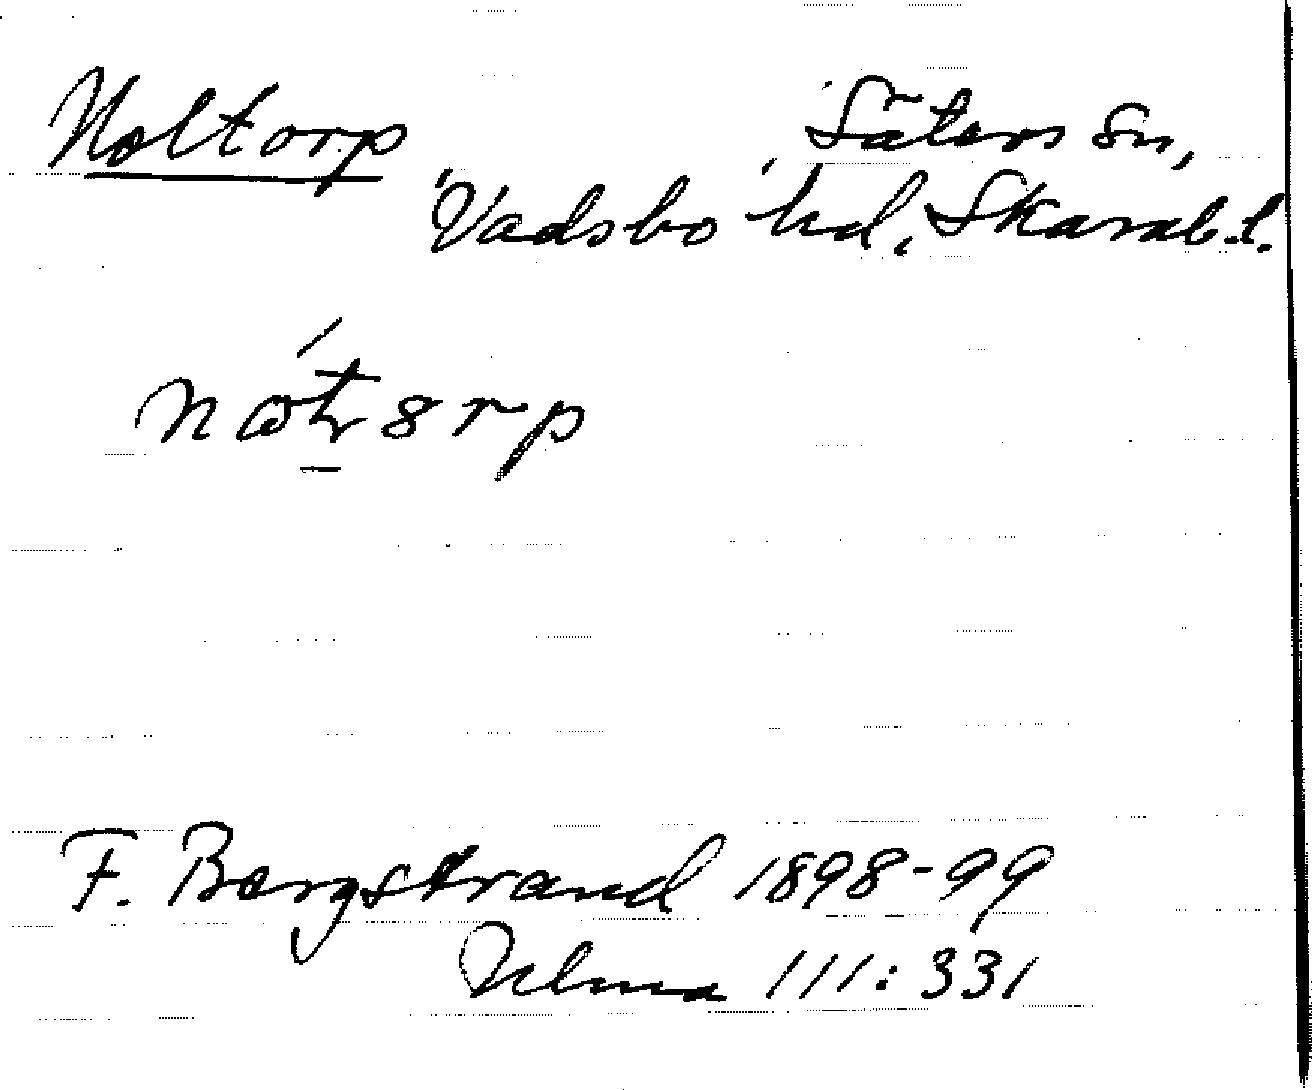 Noltorp Säters sn,
Vadsbo hd, Skarab.l.
F. Bergstrand 1898-99
Ulma 111:331